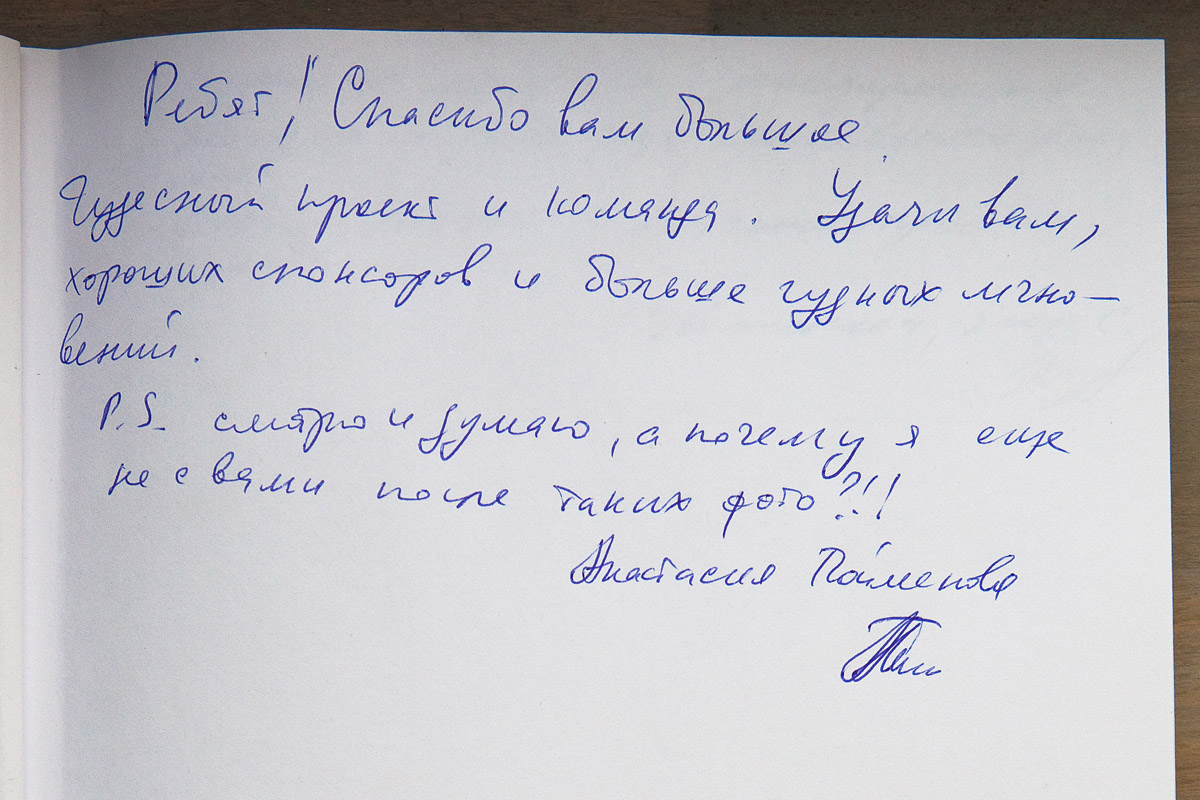 Ребят! Спасибо вам большое.
Чудесный проект и команда. Удачи вам,
хороших спонсоров и больше чудных мгно-
вений.
P.S. смотрю и думаю, а почему я еще
не с вами после таких фото?!!
Анастасия